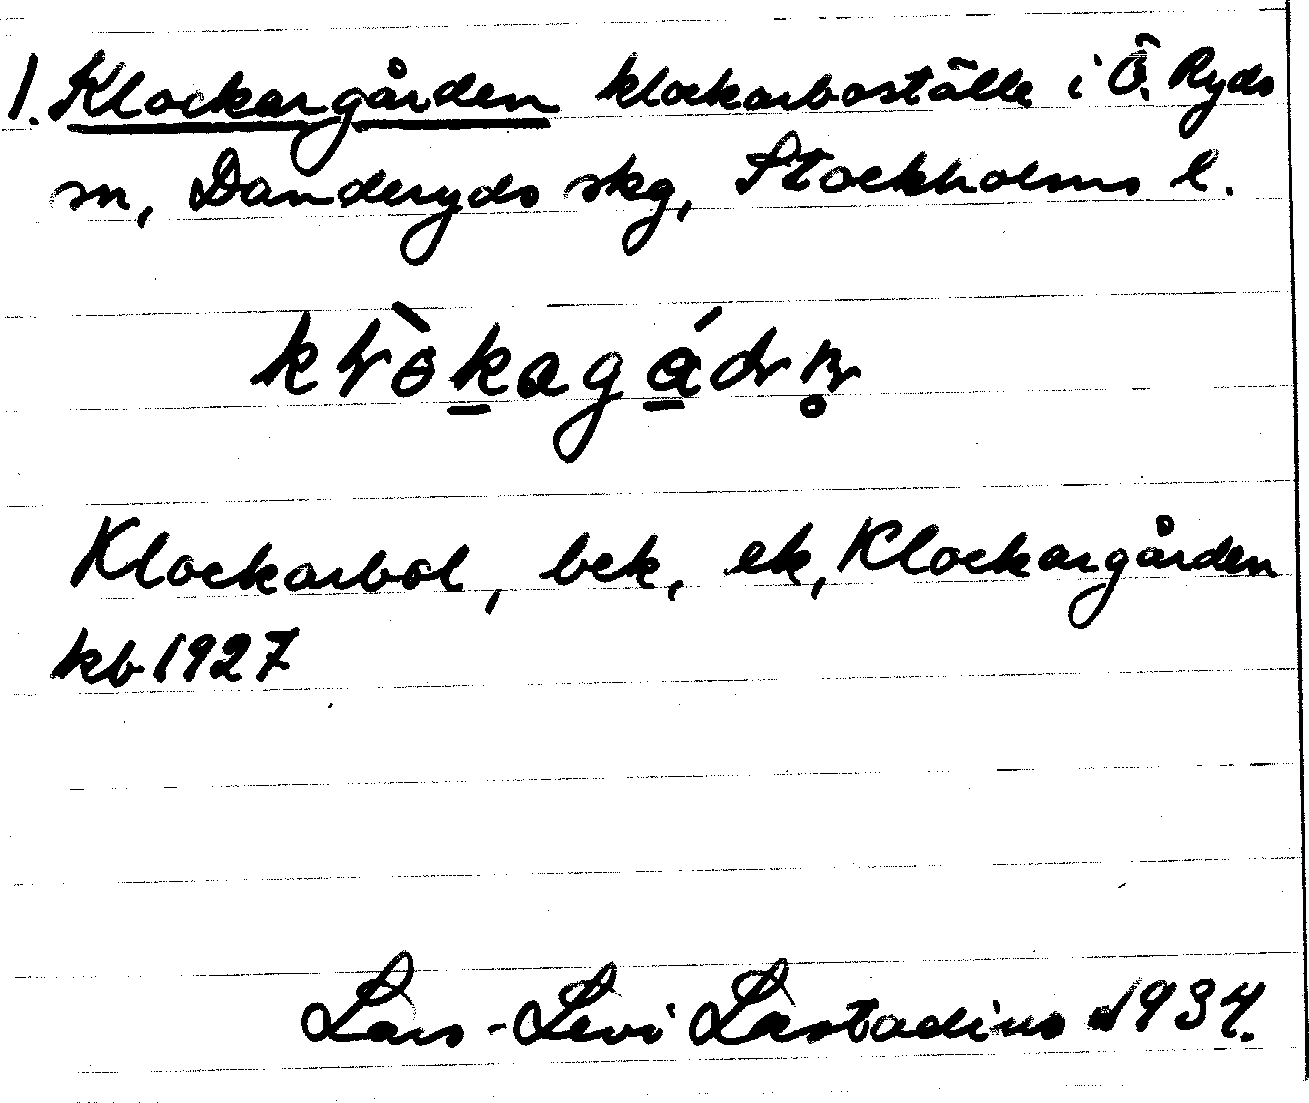 1. Klockargården klockarboställe i Ö. Ryds
sn, Danderyds skg, Stockholms l.
Klockarbol, bek, ek, Klockargården
kb 1927
Lars-Levi Læstadius 1934.